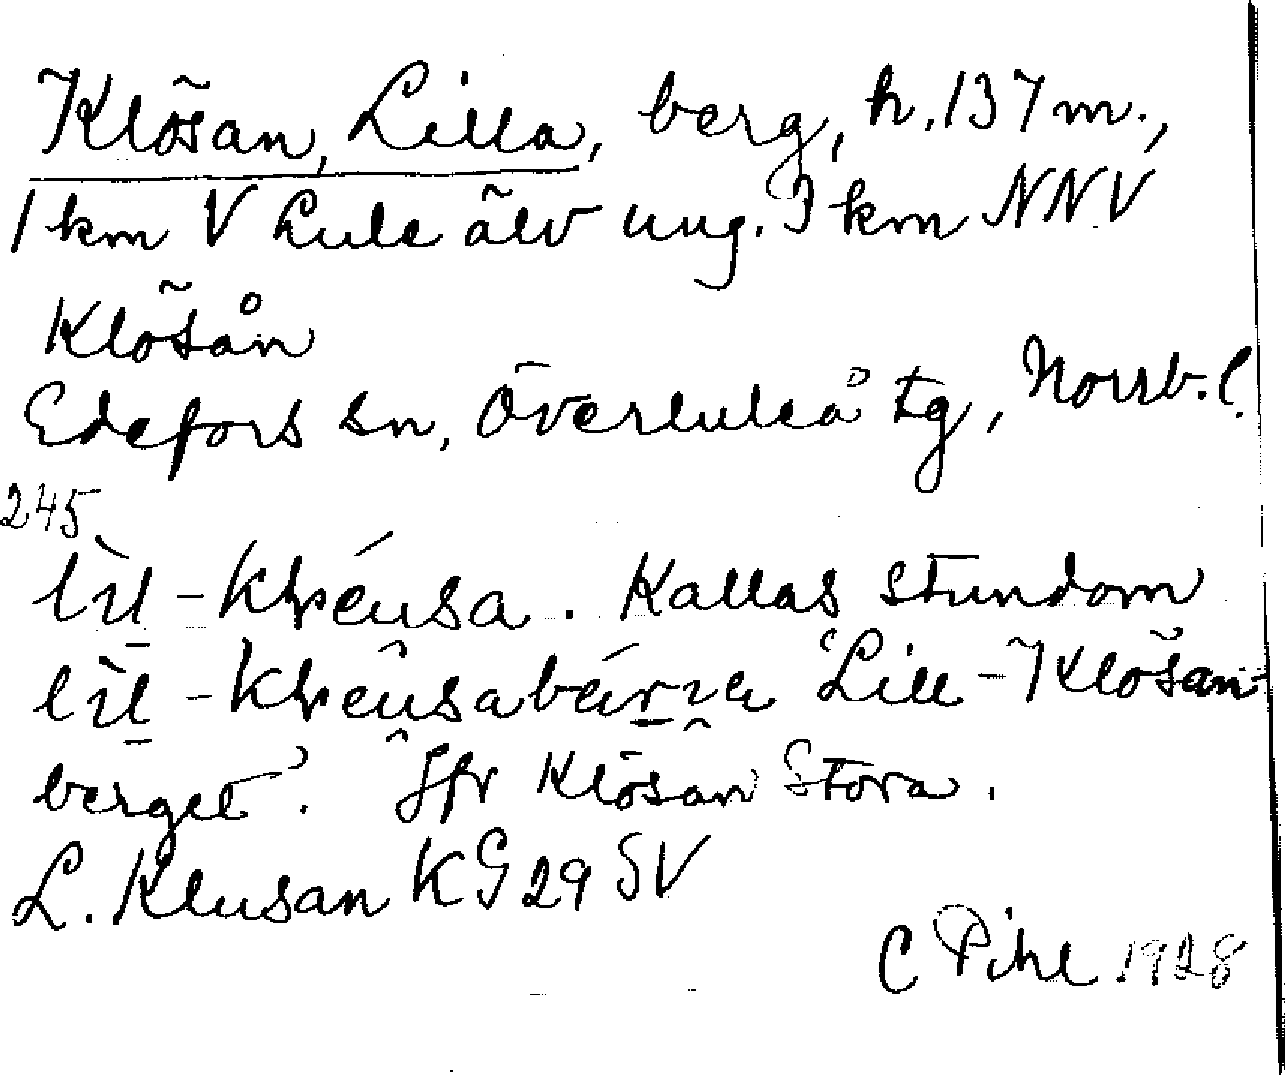 Klösan, Lilla, berg, h. 137 m.,
1 km V Lule älv ung. 3 km NNV
Klösån
Edefors sn, Överluleå tg, Norrb. l.
245
Kallas stundom
'Lill-Klösan-
berget'. Jfr Klösan Stora.
L. Klusan KG 29 SV
C Pihl 1928